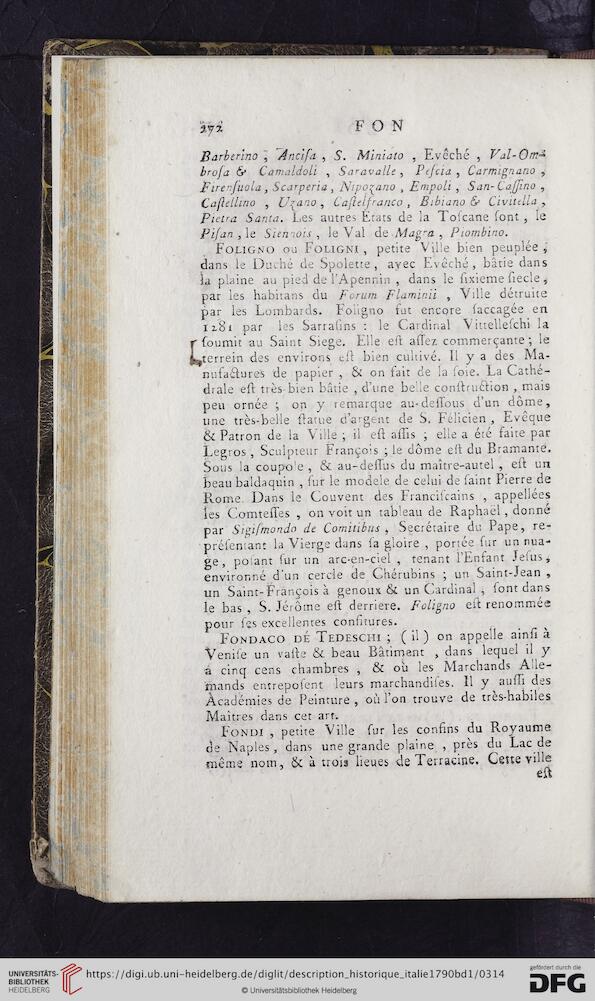 272
FON
Barberino, Anciſa, S. Miniato, Evêché, Val-Om-
broſa & Camaldoli, Saravalle, Peſcia, Carmignano,
Firenſuola, Scarperia, Nipozano, Empoli, San-Caſſino,
Caſtellino, Uzano, Caſtelfranco, Bibiano & Civitella,
Pietra Santa. Les autres Etats de la Toſcane ſont, le
Piſan, le Siennois, le Val de Magra, Piombino.
FOLIGNO ou FOLIGNI, petite Ville bien peuplée,
dans le Duché de Spolette, avec Evêché, bâtie dans
la plaine au pied de l'Apennin, dans le ſixieme ſiecle,
par les habitans du Forum Flaminii, Ville détruite
par les Lombards. Foligno fut encore ſaccagée en
1281 par les Sarraſins : le Cardinal Vittelleſchi la
ſoumit au Saint Siege. Elle eſt aſſez commerçante; le
terrein des environs eſt bien cultivé. Il y a des Ma-
nufactures de papier, & on fait de la ſoie. La Cathé-
drale eſt très-bien bâtie, d'une belle conſtruction, mais
peu ornée ; on y remarque au-deſſous d'un dôme,
une très-belle ſtatue d'argent de S. Félicien, Evêque
& Patron de la Ville ; il eſt aſſis ; elle a été faite par
Legros, Sculpteur François ; le dôme eſt du Bramante.
Sous la coupole, & au-deſſus du maître-autel, eſt un
beau baldaquin, ſur le modele de celui de ſaint Pierre de
Rome. Dans le Couvent des Franciſcains, appellées
les Comteſſes, on voit un tableau de Raphaël, donné
par Sigiſmondo de Comitibus, Secrétaire du Pape, re-
préſentant la Vierge dans ſa gloire, portée ſur un nua-
ge, poſant ſur un arc-en-ciel, tenant l'Enfant Jeſus,
environné d'un cercle de Chérubins ; un Saint-Jean,
un Saint-François à genoux & un Cardinal, ſont dans
le bas, S. Jérôme eſt derriere. Foligno eſt renommée
pour ſes excellentes confitures.
FONDACO DÉ TEDESCHI ; (il) on appelle ainſi à
Veniſe un vaſte & beau Bâtiment, dans lequel il y
a cinq cens chambres, & où les Marchands Alle-
mands entrepoſent leurs marchandiſes. Il y auſſi des
Académies de Peinture, où l'on trouve de très-habiles
Maîtres dans cet art.
FONDI, petite Ville ſur les confins du Royaume
de Naples, dans une grande plaine, près du Lac de
même nom, & à trois lieues de Terracine. Cette ville
eſt
UNIVERSITÄTS-
BIBLIOTHEK
HEIDELBERG
https://digi.ub.uni-heidelberg.de/diglit/description_historique_italie1790bd1/0314
© Universitätsbibliothek Heidelberg
gefördert durch die
DFG